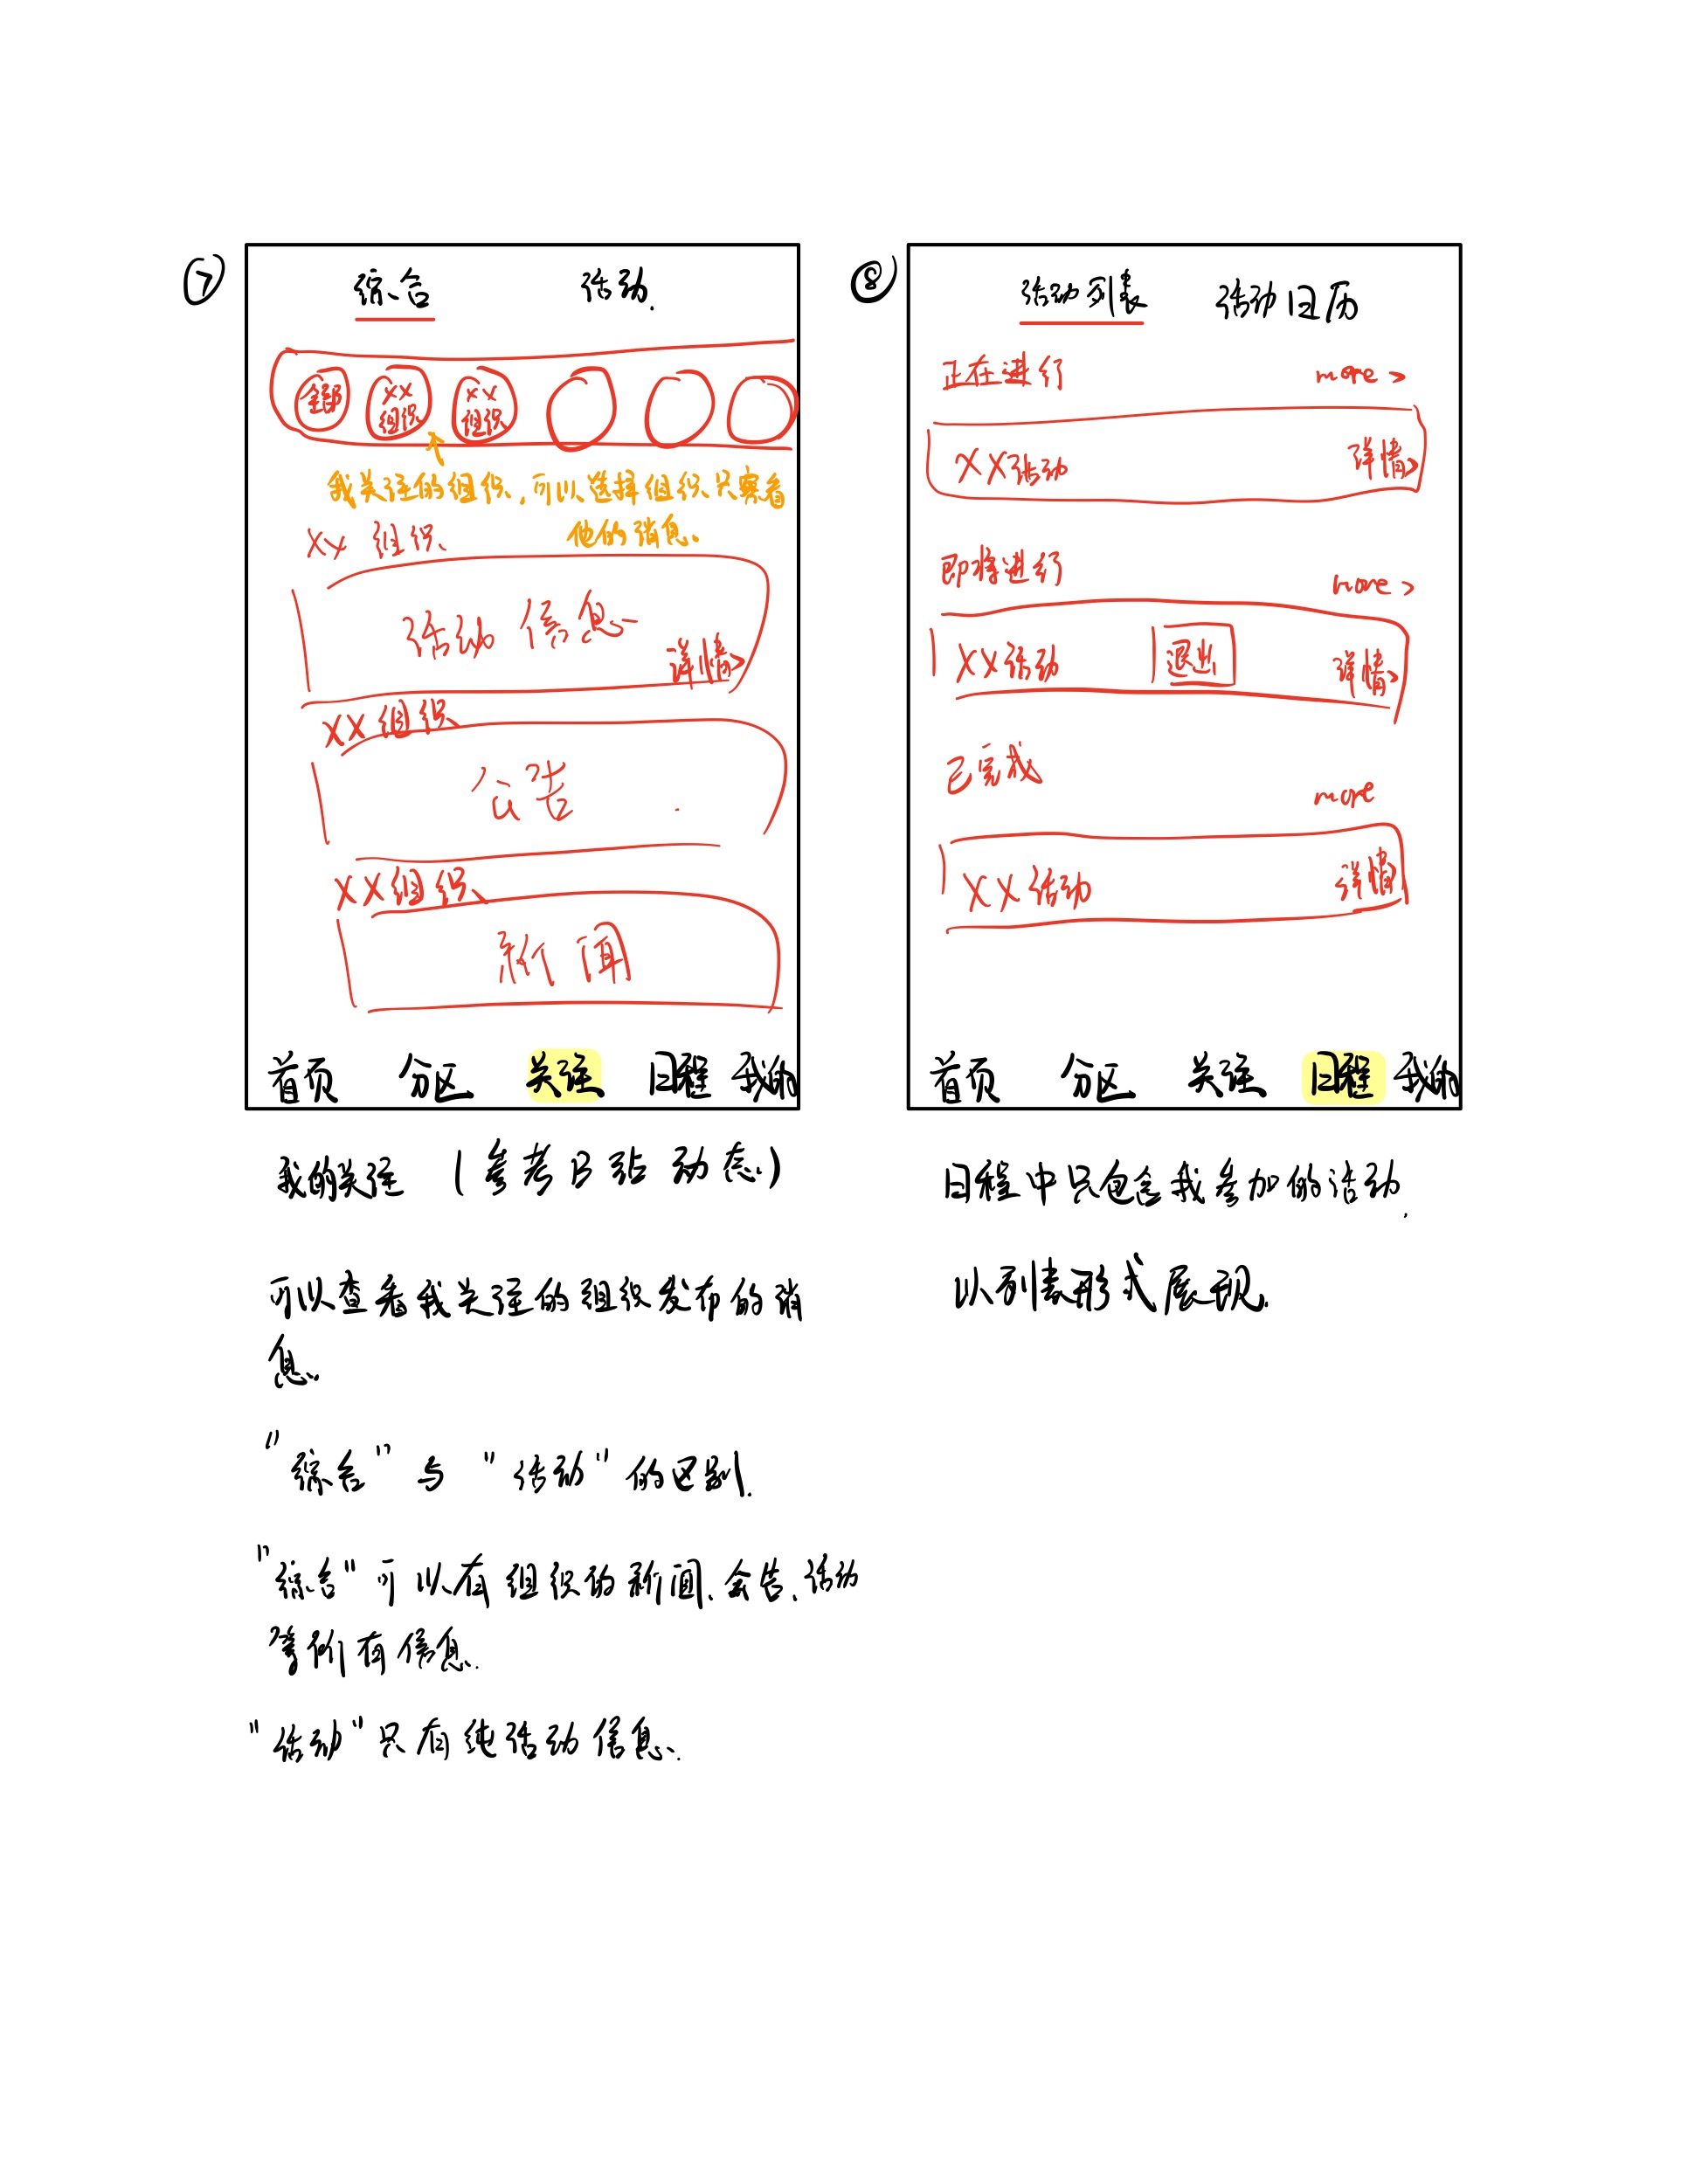 ⑦
综合 活动.
全部 XX组织 XX组织
我关注的组织,可以选择组织只察看
他的消息。
XX 组织
活动 信息
详情>
XX 组织
公告
XX 组织
新闻
首页 分区 关注 日程 我的
我的关注 (参考B站 动态)
可以查看我关注的组织发布的消
息.
"综合" 与 "活动" 的区别.
"综合" 可以有组织的新闻、公告、活动
等所有信息.
"活动" 只有纯活动信息.
⑧
活动列表 活动日历
正在进行 more >
XX活动 详情>
即将进行 more >
XX活动 退出 详情>
已完成 more
XX活动 详情
首页 分区 关注 日程 我的
日程中只包含我参加的活动.
以列表形式展现.